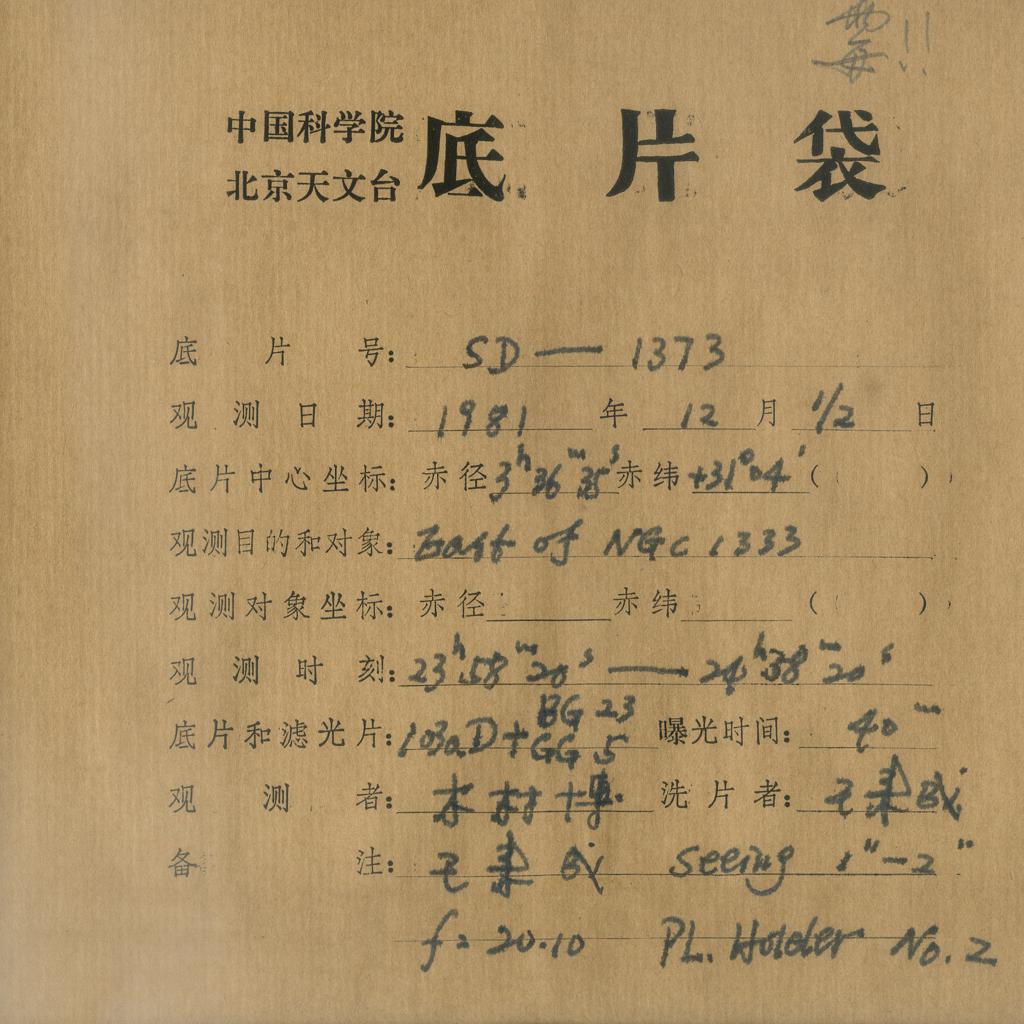 中国科学院
北京天文台
底片袋
底片号： SD — 1373
观测日期： 1981 年 12 月 1/2 日
底片中心坐标： 赤径 3h 36m 35s 赤纬 +31°04' ( )
观测目的和对象： East of NGC 1333
观测对象坐标： 赤径 赤纬 ( )
观测时刻： 23h 58m 20s — 24h 38m 20s
底片和滤光片： 103aD + BG 23 GG 5 曝光时间： 40m
观测者： 木村博 洗片者：
备注： Seeing 1"-2"
f = 20.10 PL. Holder No. 2